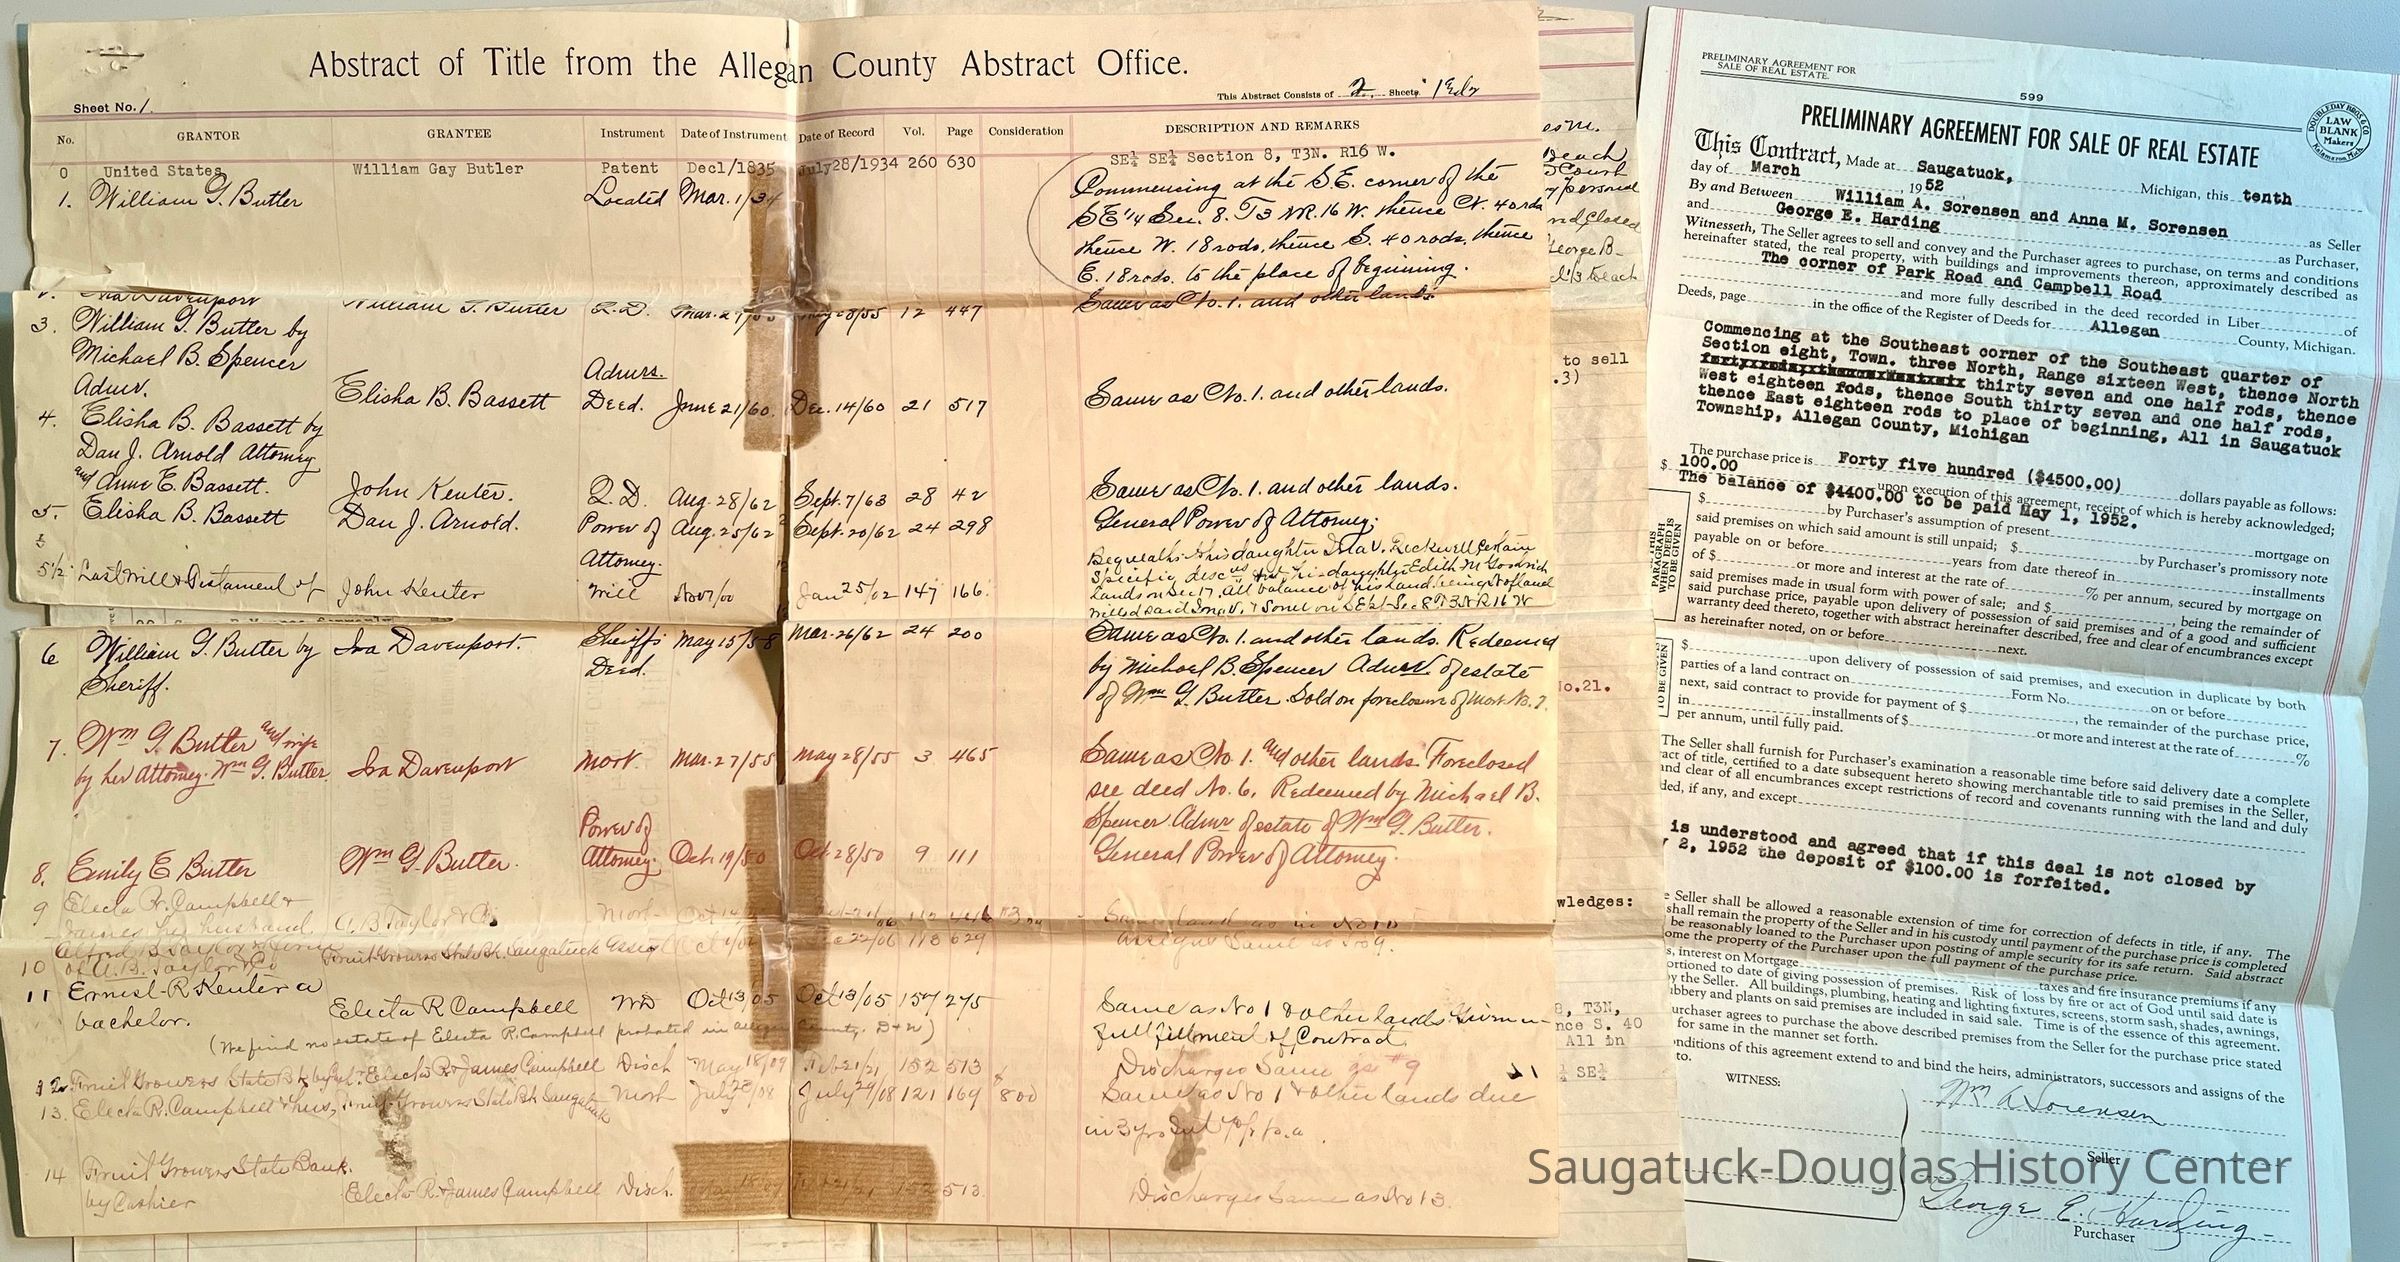 Abstract of Title from the Allegan County Abstract Office.
Sheet No. 1.
This Abstract Consists of 2 Sheets
No. GRANTOR GRANTEE Instrument Date of Instrument Date of Record Vol. Page Consideration DESCRIPTION AND REMARKS
0 United States William Gay Butler Patent Dec1/1835 July28/1934 260 630 SE¼ SE¼ Section 8, T3N. R16 W.
1. William G. Butler Located Mar. 1/34 Commencing at the S.E. corner of the
SE¼ Sec. 8. T3 N.R. 16 W. thence N. 40 rds
thence W. 18 rods, thence S. 40 rods, thence
E. 18 rods. to the place of beginning.
Ira Davenport William G. Butler Q.D. Mar. 27/55 May 28/55 12 447 Same as No. 1. and other lands.
3. William G. Butler by
Michael B. Spencer
Admr. Elisha B. Bassett Admrs. Deed. June 21/60. Dec. 14/60 21 517 Same as No. 1. and other lands.
4. Elisha B. Bassett by
Dan J. Arnold Attorney
and Anne E. Bassett. John Kenter. Q.D. Aug. 28/62 Sept. 7/63 28 42 Same as No. 1. and other lands.
5. Elisha B. Bassett Dan J. Arnold. Power of Attorney. Aug. 25/62 Sept. 20/62 24 298 General Power of Attorney;
5½ Last Will & Testament of John Kenter Will Nov 7/00 Jan 25/02 147 166. Bequeaths to his daughter Ina V.
his daughter Edith M. Goodrich
Lands on Sec 17. All balance of his land
6 William G. Butler by
Sheriff. Ira Davenport. Sheriffs Deed. May 15/58 Mar. 26/62 24 200 Same as No. 1. and other lands. Redeemed
by Michael B. Spencer Admr. of estate
of Wm G. Butler. Sold on foreclosure of mort No. 7.
7. Wm G. Butler and wife
by her Attorney. Wm G. Butler. Ira Davenport Mort. Mar. 27/55 May 28/55 3 465 Same as No. 1. and other lands. Foreclosed
see deed No. 6. Redeemed by Michael B.
Spencer Admr of estate of Wm G. Butler.
8. Emily E Butler Wm G. Butler. Power of Attorney. Oct. 19/50 Oct. 28/50 9 111 General Power of Attorney.
9 Electa R. Campbell &
James her husband A. B. Taylor & Co. Mort
10 of A. B. Taylor & Co Fruit Growers State Bk. Saugatuck 113 629 Same as No 9.
11 Ernest R Kenter a
bachelor. Electa R Campbell WD Oct 13/05 Oct 13/05 157 275 Same as No 1 & other lands. Given in
fullfillment of Contract.
(We find no estate of Electa R. Campbell probated in Allegan County.
12. Fruit Growers State Bk Electa R & James Campbell Disch May 18/09 Feb 21/21 152 513 Discharges Same as #9
13. Electa R. Campbell & hus, Fruit Growers State Bk Saugatuck Mort July 28/08 July 29/08 121 169 $800 Same as No 1 & other lands due
in 3 yrs
14 Fruit Growers State Bank.
by Cashier Electa R & James Campbell Disch. 513. Discharges Same as No 13.
to sell
.3)
No.21.
wledges:
8, T3N,
nce S. 40
All in
¼ SE¼
PRELIMINARY AGREEMENT FOR
SALE OF REAL ESTATE.
599
DOUBLEDAY BROS. & CO.
LAW
BLANK
Makers
Kalamazoo, Mich.
PRELIMINARY AGREEMENT FOR SALE OF REAL ESTATE
This Contract, Made at Saugatuck, Michigan, this tenth
day of March, 1952
By and Between William A. Sorensen and Anna M. Sorensen as Seller
and George E. Harding as Purchaser,
Witnesseth, The Seller agrees to sell and convey and the Purchaser agrees to purchase, on terms and conditions
hereinafter stated, the real property, with buildings and improvements thereon, approximately described as
The corner of Park Road and Campbell Road
and more fully described in the deed recorded in Liber of
Deeds, page in the office of the Register of Deeds for Allegan County, Michigan.
Commencing at the Southeast corner of the Southeast quarter of
Section eight, Town. three North, Range sixteen West, thence North
thirty seven and one half rods, thence
West eighteen rods, thence South thirty seven and one half rods,
thence East eighteen rods to place of beginning, All in Saugatuck
Township, Allegan County, Michigan
The purchase price is Forty five hundred ($4500.00) dollars payable as follows:
$ 100.00 upon execution of this agreement, receipt of which is hereby acknowledged;
The balance of $4400.00 to be paid May 1, 1952.
$ by Purchaser's assumption of present mortgage on
said premises on which said amount is still unpaid; $ by Purchaser's promissory note
payable on or before years from date thereof in installments
of $ or more and interest at the rate of % per annum, secured by mortgage on
said premises made in usual form with power of sale; and $ , being the remainder of
said purchase price, payable upon delivery of possession of said premises and of a good and sufficient
warranty deed thereto, together with abstract hereinafter described, free and clear of encumbrances except
as hereinafter noted, on or before next.
THIS
PARAGRAPH
WHEN DEED IS
TO BE GIVEN
$ upon delivery of possession of said premises, and execution in duplicate by both
parties of a land contract on Form No. on or before
next, said contract to provide for payment of $ , the remainder of the purchase price,
in installments of $ or more and interest at the rate of %
per annum, until fully paid.
TO BE GIVEN
The Seller shall furnish for Purchaser's examination a reasonable time before said delivery date a complete
act of title, certified to a date subsequent hereto showing merchantable title to said premises in the Seller,
and clear of all encumbrances except restrictions of record and covenants running with the land and duly
ded, if any, and except
is understood and agreed that if this deal is not closed by
2, 1952 the deposit of $100.00 is forfeited.
e Seller shall be allowed a reasonable extension of time for correction of defects in title, if any. The
shall remain the property of the Seller and in his custody until payment of the purchase price is completed
be reasonably loaned to the Purchaser upon posting of ample security for its safe return. Said abstract
ome the property of the Purchaser upon the full payment of the purchase price.
s, interest on Mortgage taxes and fire insurance premiums if any
ortioned to date of giving possession of premises. Risk of loss by fire or act of God until said date is
by the Seller. All buildings, plumbing, heating and lighting fixtures, screens, storm sash, shades, awnings,
ubbery and plants on said premises are included in said sale. Time is of the essence of this agreement.
urchaser agrees to purchase the above described premises from the Seller for the purchase price stated
for same in the manner set forth.
onditions of this agreement extend to and bind the heirs, administrators, successors and assigns of the
to.
WITNESS:
Wm A Sorensen
Seller
George E. Harding
Purchaser
Saugatuck-Douglas History Center